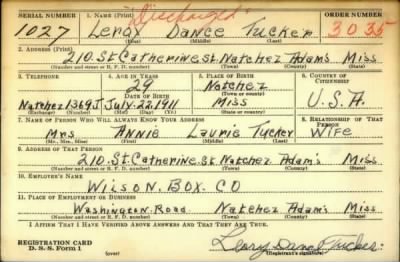 "Discharged"
SERIAL NUMBER 1. NAME (Print) ORDER NUMBER
1027 Leroy Dance Tucker 3035
(First) (Middle) (Last)
2. ADDRESS (Print)
210. St Catherine. St. Natchez Adam's Miss
(Number and street or R. F. D. number) (Town) (County) (State)
3. TELEPHONE 4. AGE IN YEARS 5. PLACE OF BIRTH 6. COUNTRY OF CITIZENSHIP
29 Natchez
DATE OF BIRTH (Town or county)
Natchez 1369J July. 22. 1911 Miss U.S.A.
(Exchange) (Number) (Mo.) (Day) (Yr.) (State or country)
7. NAME OF PERSON WHO WILL ALWAYS KNOW YOUR ADDRESS 8. RELATIONSHIP OF THAT PERSON
Mrs Annie Laurie Tucker Wife
(Mr., Mrs., Miss) (First) (Middle) (Last)
9. ADDRESS OF THAT PERSON
210. St. Catherine. St. Natchez Adam's Miss
(Number and street or R. F. D. number) (Town) (County) (State)
10. EMPLOYER'S NAME
Wilson. Box. Co
11. PLACE OF EMPLOYMENT OR BUSINESS
Washington. Road. Natchez Adam's Miss
(Number and street or R. F. D. number) (Town) (County) (State)
I AFFIRM THAT I HAVE VERIFIED ABOVE ANSWERS AND THAT THEY ARE TRUE.
REGISTRATION CARD
D. S. S. Form 1 (over) Leroy Dance Tucker.
(Registrant's signature)